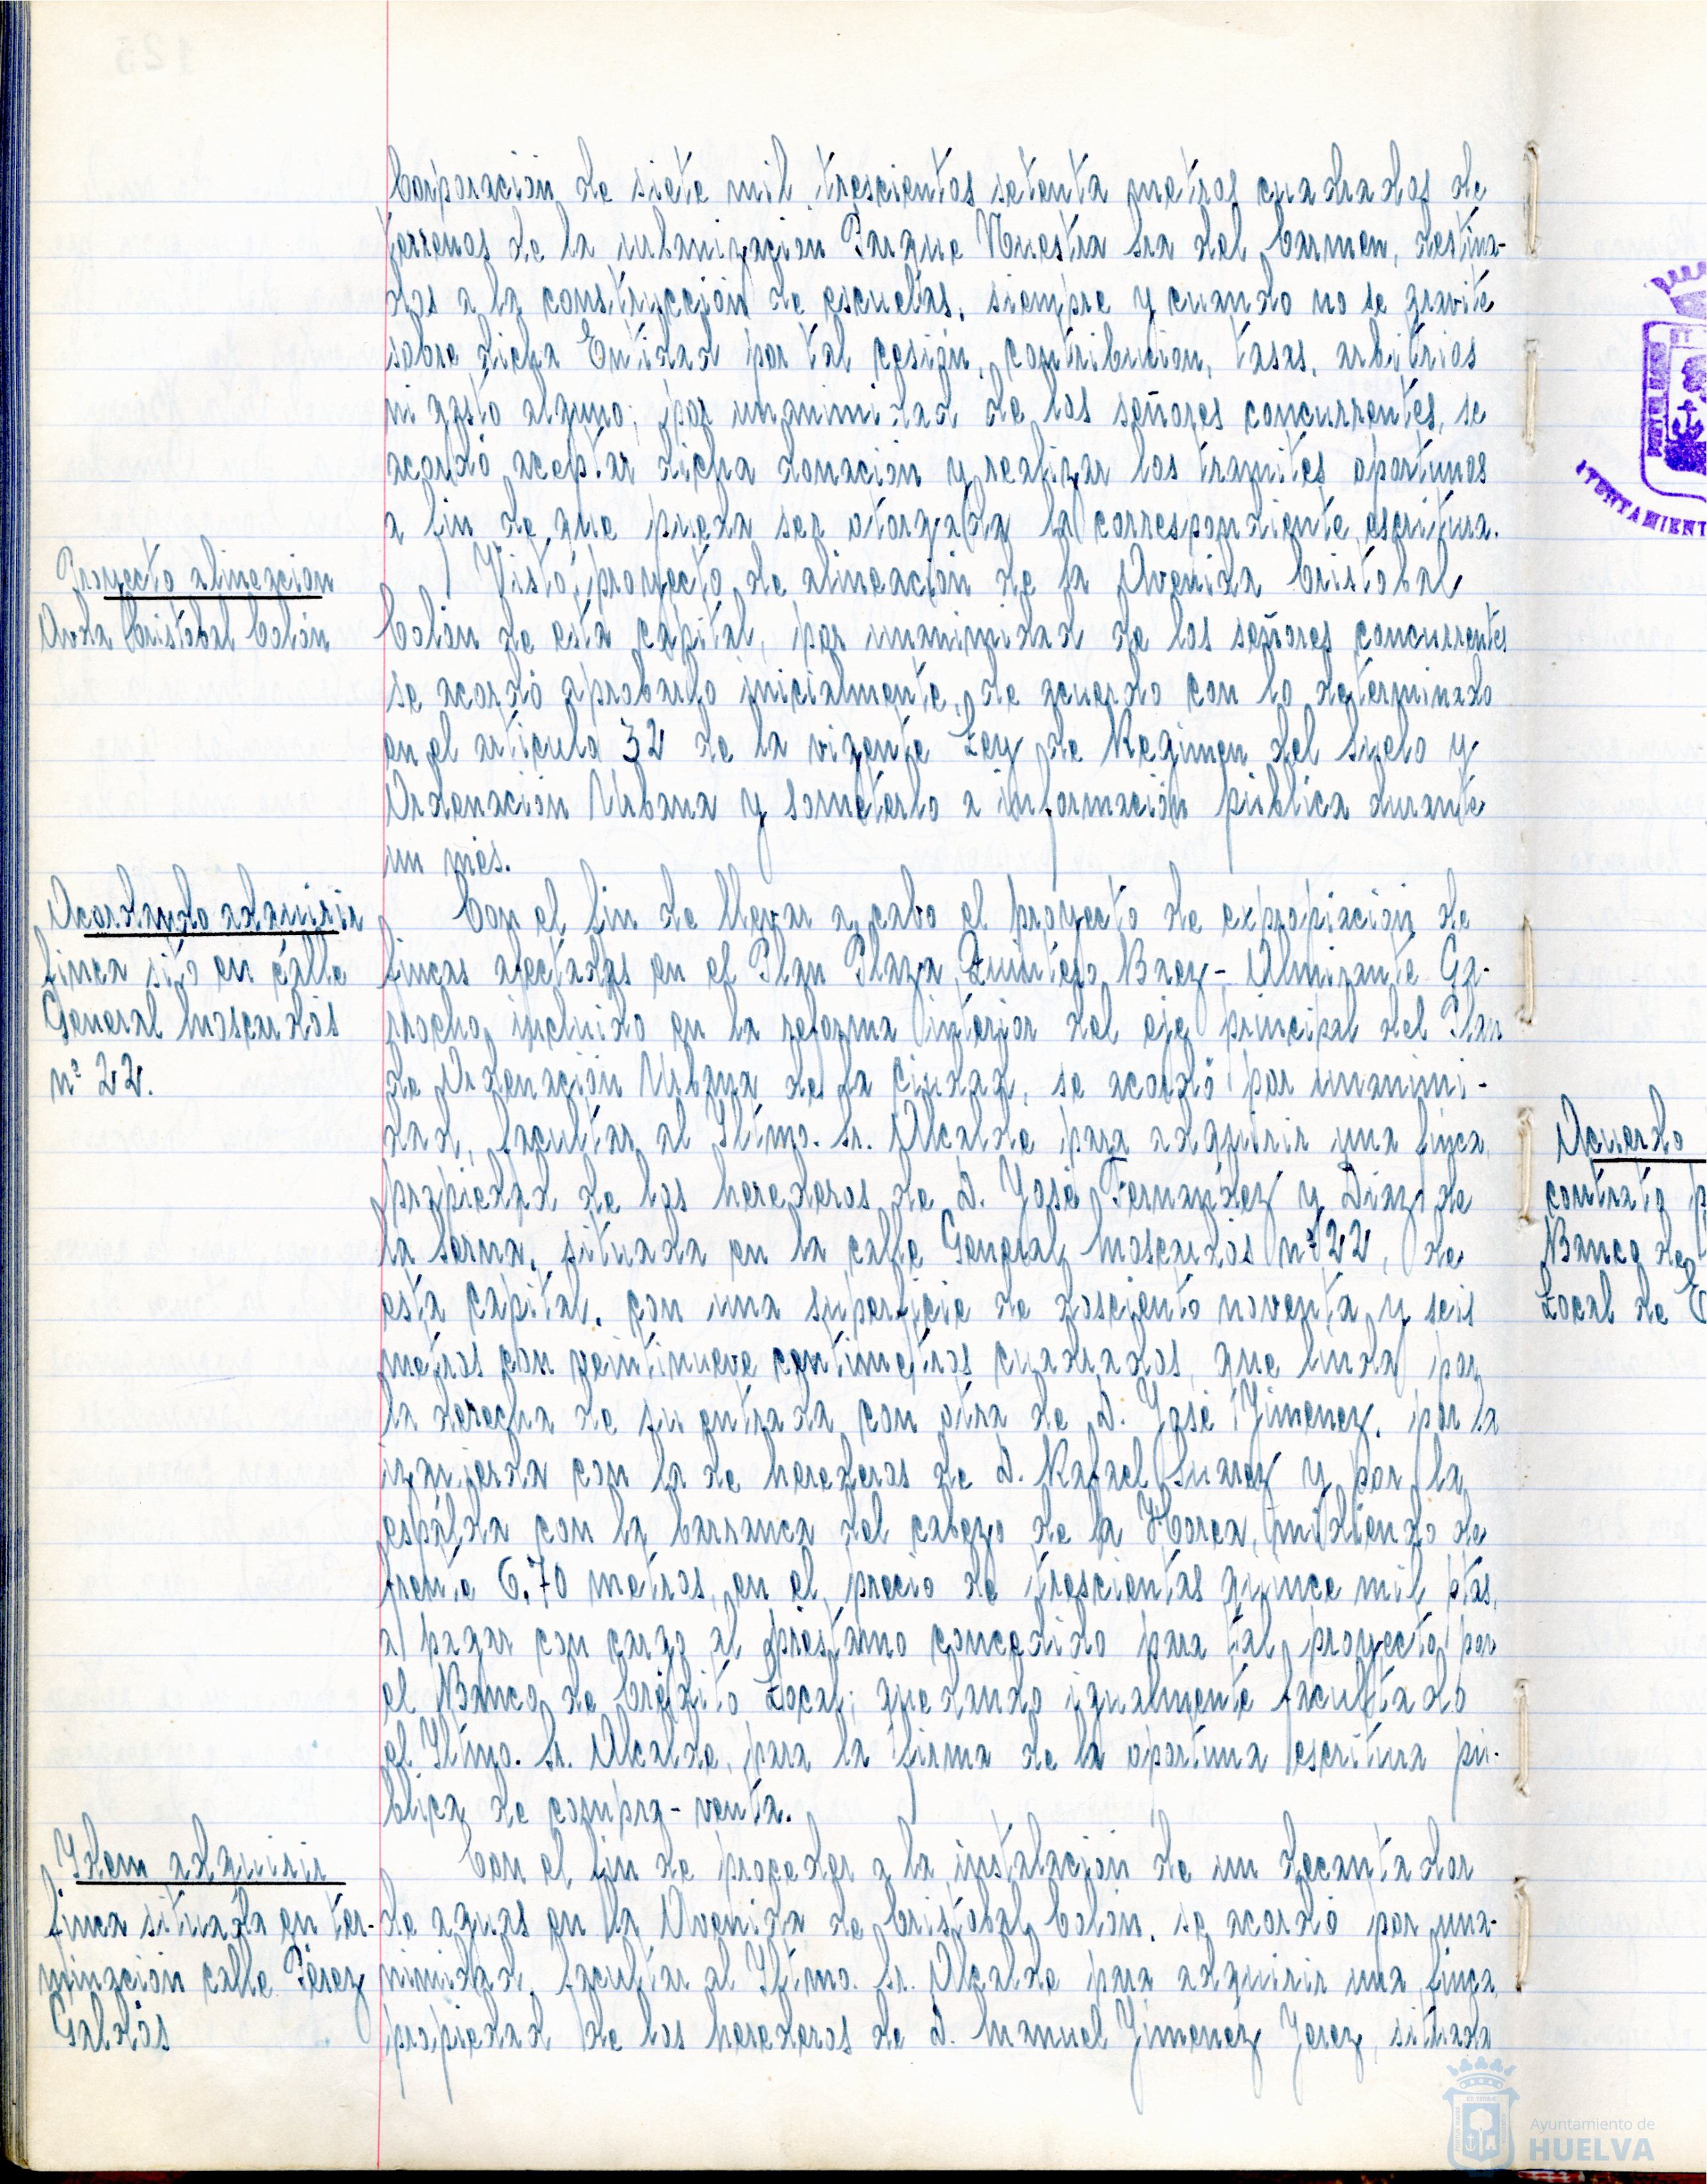 Corporación de siete mil trescientos setenta metros cuadrados de
terrenos de la urbanización Parque Nuestra Sra del Carmen, destina-
dos a la construcción de escuelas, siempre y cuando no se gravite
sobre dicha Entidad por tal cesión, contribución, tasas, arbitrios
ni gasto alguno; por unanimidad de los señores concurrentes, se
acordó aceptar dicha donación y realizar los tramites oportunos
a fin de que pueda ser otorgada la correspondiente escritura.
Proyecto alineacion
Avda Cristobal Colón
Visto proyecto de alineación de la Avenida Cristobal
Colón de esta capital, por unanimidad de los señores concurrentes
se acordó aprobarlo inicialmente, de acuerdo con lo determinado
en el articulo 32 de la vigente Ley de Regimen del Suelo y
Ordenación Urbana y someterlo a información pública durante
un mes.
Acordando adquirir
finca sito en calle
General Moscardós
nº 22.
Con el fin de llevar a cabo el proyecto de expropiación de
fincas afectadas en el Plan Plaza Quintero Baez - Almirante Ga-
rrocho, incluido en la reforma interior del eje principal del Plan
de Ordenación Urbana de la Ciudad, se acordó por unanimi-
dad, facultar al Iltmo. Sr. Alcalde para adquirir una finca,
propiedad de los herederos de D. José Fernandez y Diaz de
la Serna, situada en la calle General Moscardós nº 22, de
esta capital, con una superficie de dosciento noventa y seis
metros con veintinueve centimetros cuadrados, que linda por
la derecha de su entrada con otra de D. José Jimenez, por la
izquierda con la de herederos de D. Rafael Suarez y por la
espalda con la barranca del cabezo de la Horca, midiendo de
frente 6,70 metros, en el precio de trescientas quince mil ptas,
a pagar con cargo al préstamo concedido para tal proyecto por
el Banco de Crédito Local; quedando igualmente facultado
el Iltmo. Sr. Alcalde, para la firma de la oportuna escritura pú-
blica de compra-venta.
Idem adquirir
finca situada en ter-
minacion calle Pérez
Galdós
Con el fin de proceder a la instalación de un decantador
de aguas en la Avenida de Cristobal Colón, se acordó por una-
nimidad, facultar al Iltmo. Sr. Alcalde para adquirir una finca,
propiedad de los herederos de D. Manuel Jimenez Jerez, situada
Acuerdo
contrato
Banco de
Local de
Ayuntamiento de
HUELVA